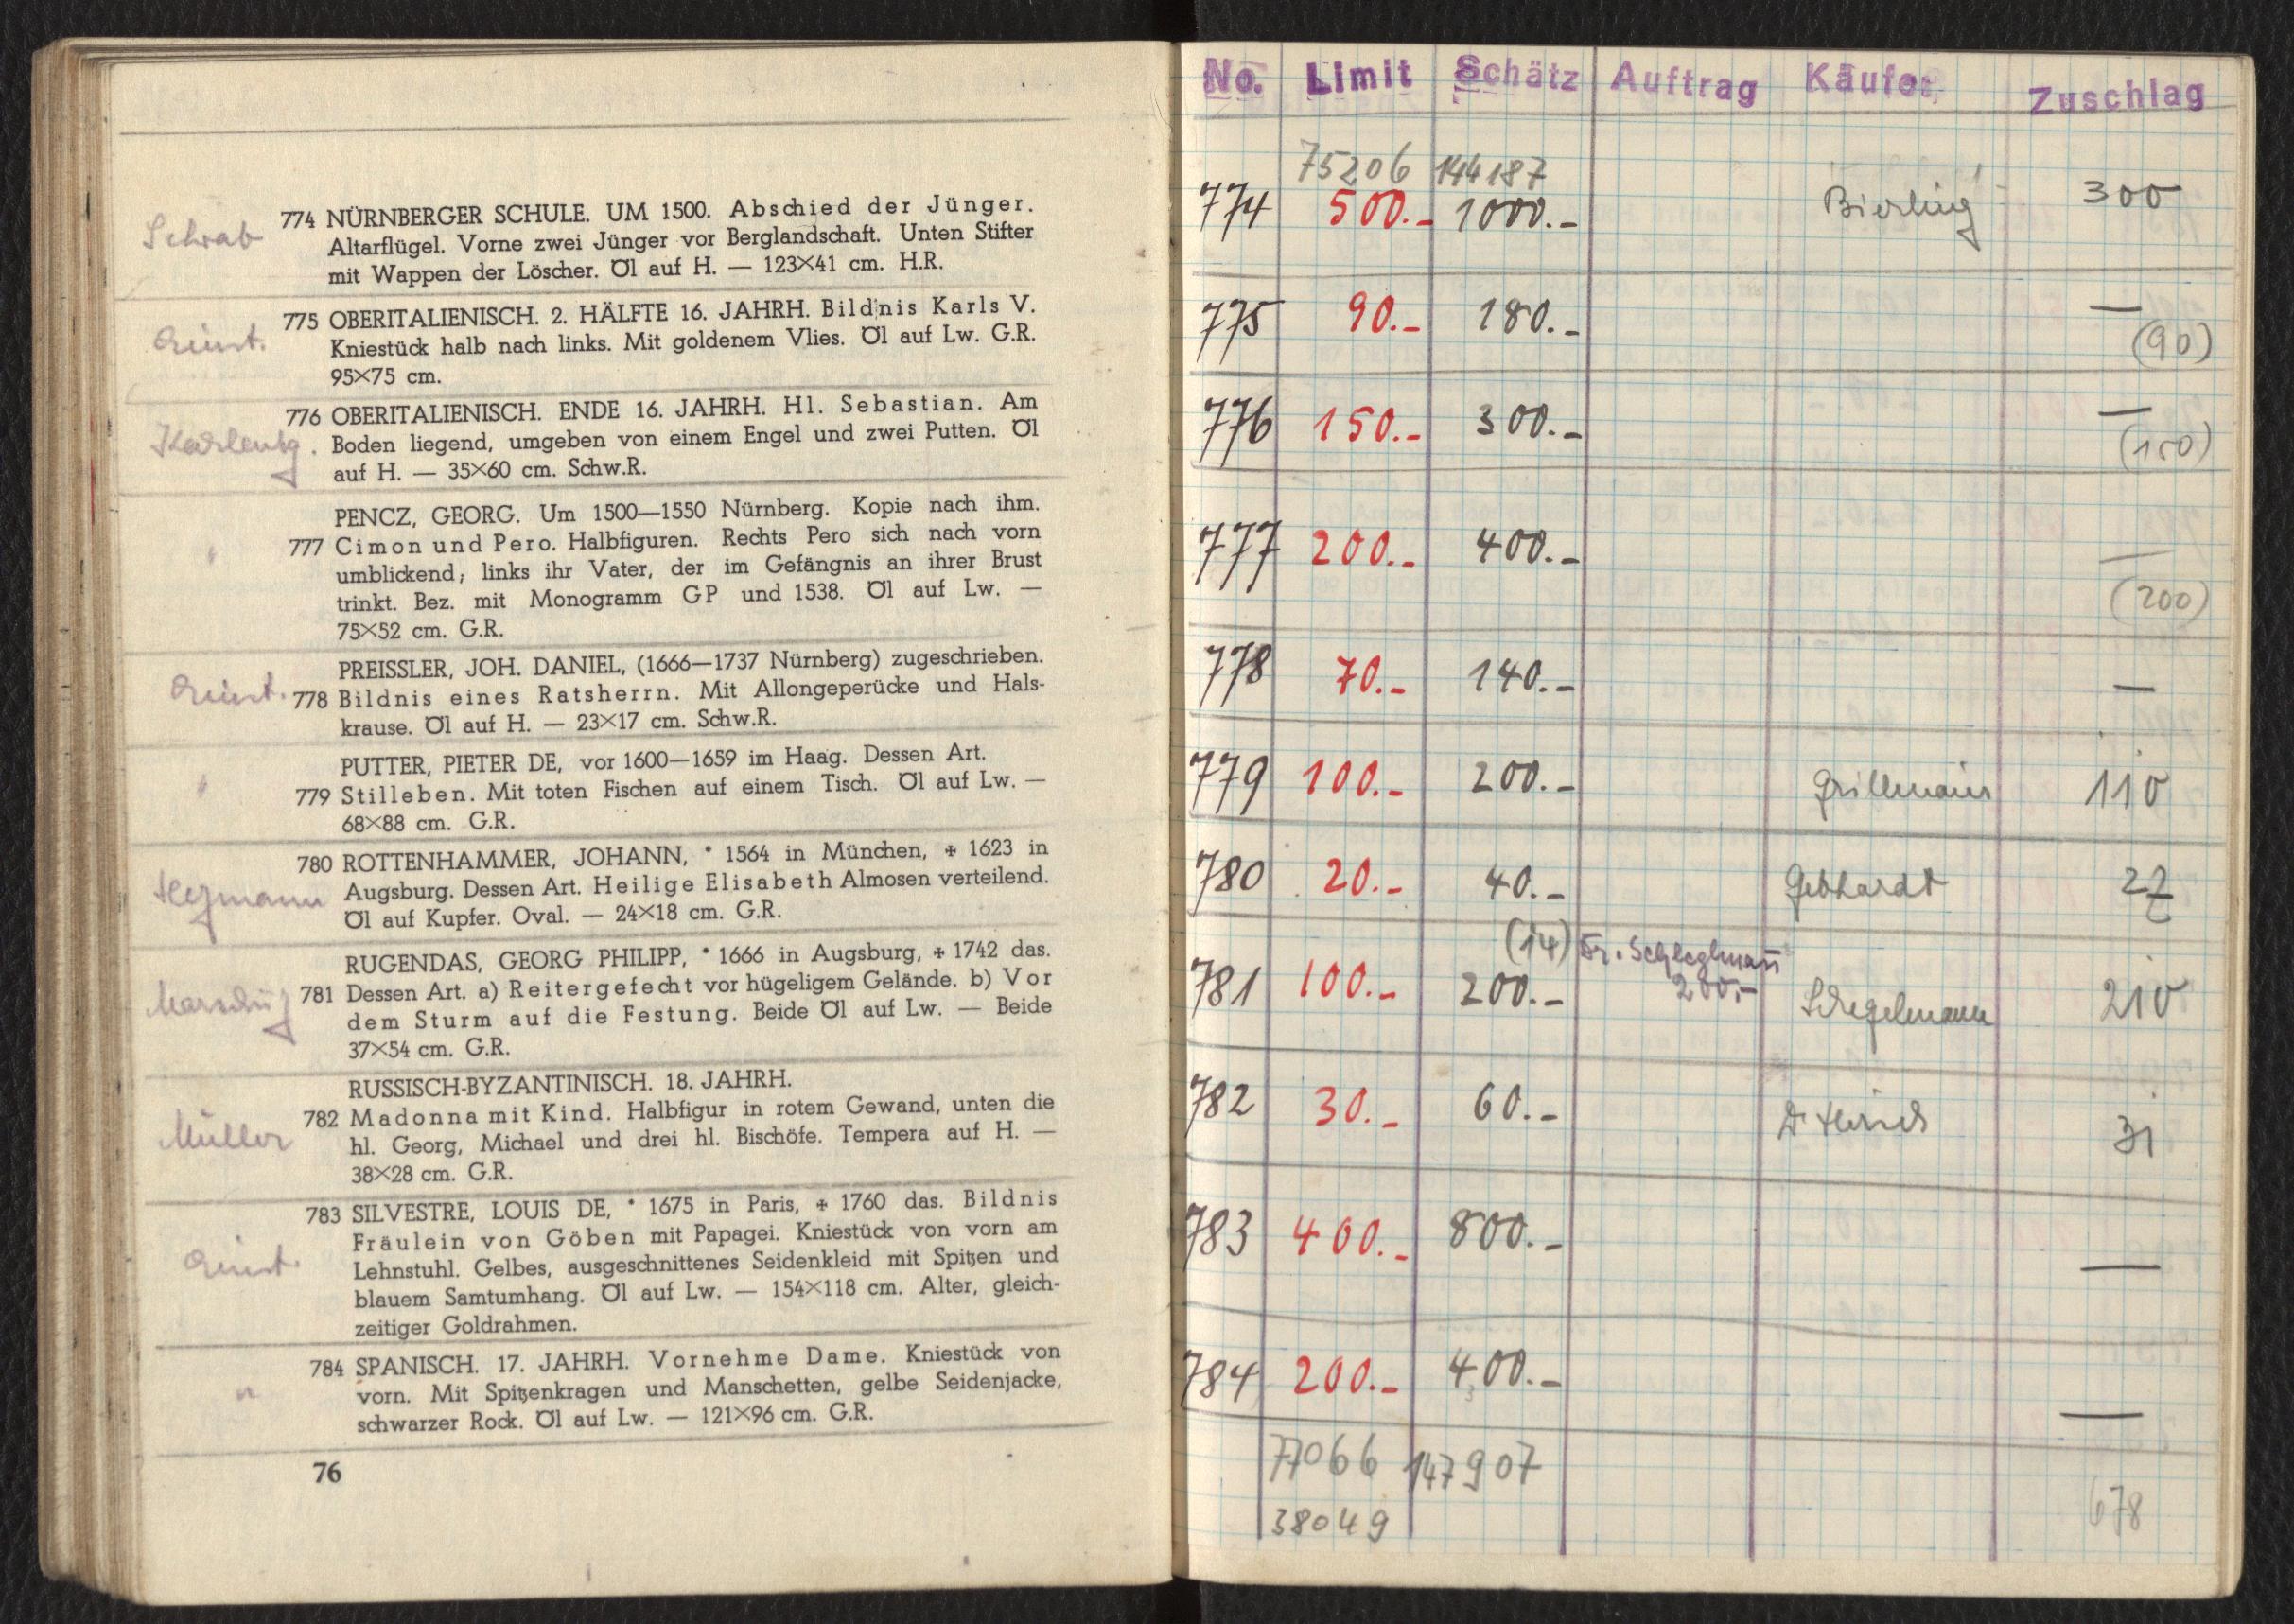 774 NÜRNBERGER SCHULE. UM 1500. Abschied der Jünger.
Schwab
Altarflügel. Vorne zwei Jünger vor Berglandschaft. Unten Stifter
mit Wappen der Löscher. Öl auf H. — 123×41 cm. H.R.
775 OBERITALIENISCH. 2. HÄLFTE 16. JAHRH. Bildnis Karls V.
Kniestück halb nach links. Mit goldenem Vlies. Öl auf Lw. G.R.
95×75 cm.
776 OBERITALIENISCH. ENDE 16. JAHRH. Hl. Sebastian. Am
Boden liegend, umgeben von einem Engel und zwei Putten. Öl
auf H. — 35×60 cm. Schw.R.
PENCZ, GEORG. Um 1500—1550 Nürnberg. Kopie nach ihm.
777 Cimon und Pero. Halbfiguren. Rechts Pero sich nach vorn
umblickend; links ihr Vater, der im Gefängnis an ihrer Brust
trinkt. Bez. mit Monogramm GP und 1538. Öl auf Lw. —
75×52 cm. G.R.
PREISSLER, JOH. DANIEL, (1666—1737 Nürnberg) zugeschrieben.
778 Bildnis eines Ratsherrn. Mit Allongeperücke und Hals-
krause. Öl auf H. — 23×17 cm. Schw.R.
PUTTER, PIETER DE, vor 1600—1659 im Haag. Dessen Art.
779 Stilleben. Mit toten Fischen auf einem Tisch. Öl auf Lw. —
68×88 cm. G.R.
780 ROTTENHAMMER, JOHANN, * 1564 in München, ✠ 1623 in
Augsburg. Dessen Art. Heilige Elisabeth Almosen verteilend.
Öl auf Kupfer. Oval. — 24×18 cm. G.R.
RUGENDAS, GEORG PHILIPP, * 1666 in Augsburg, ✠ 1742 das.
781 Dessen Art. a) Reitergefecht vor hügeligem Gelände. b) Vor
dem Sturm auf die Festung. Beide Öl auf Lw. — Beide
37×54 cm. G.R.
RUSSISCH-BYZANTINISCH. 18. JAHRH.
782 Madonna mit Kind. Halbfigur in rotem Gewand, unten die
Müller
hl. Georg, Michael und drei hl. Bischöfe. Tempera auf H. —
38×28 cm. G.R.
783 SILVESTRE, LOUIS DE, * 1675 in Paris, ✠ 1760 das. Bildnis
Fräulein von Göben mit Papagei. Kniestück von vorn am
Lehnstuhl. Gelbes, ausgeschnittenes Seidenkleid mit Spitzen und
blauem Samtumhang. Öl auf Lw. — 154×118 cm. Alter, gleich-
zeitiger Goldrahmen.
784 SPANISCH. 17. JAHRH. Vornehme Dame. Kniestück von
"
vorn. Mit Spitzenkragen und Manschetten, gelbe Seidenjacke,
schwarzer Rock. Öl auf Lw. — 121×96 cm. G.R.
76
No. Limit Schätz Auftrag Käufer Zuschlag
75206 144187
774 500.- 1000.- Bierling 300
775 90.- 180.- —
(90)
776 150.- 300.- —
(150)
777 200.- 400.- —
(200)
778 70.- 140.- —
779 100.- 200.- Grillmaier 110
780 20.- 40.- Gebhardt 27
(14) Fr. Schleglmann
781 100.- 200.- 200.- Schlegelmann 210
782 30.- 60.- 31
783 400.- 800.- —
784 200.- 400.- —
77066 147907
38049 678